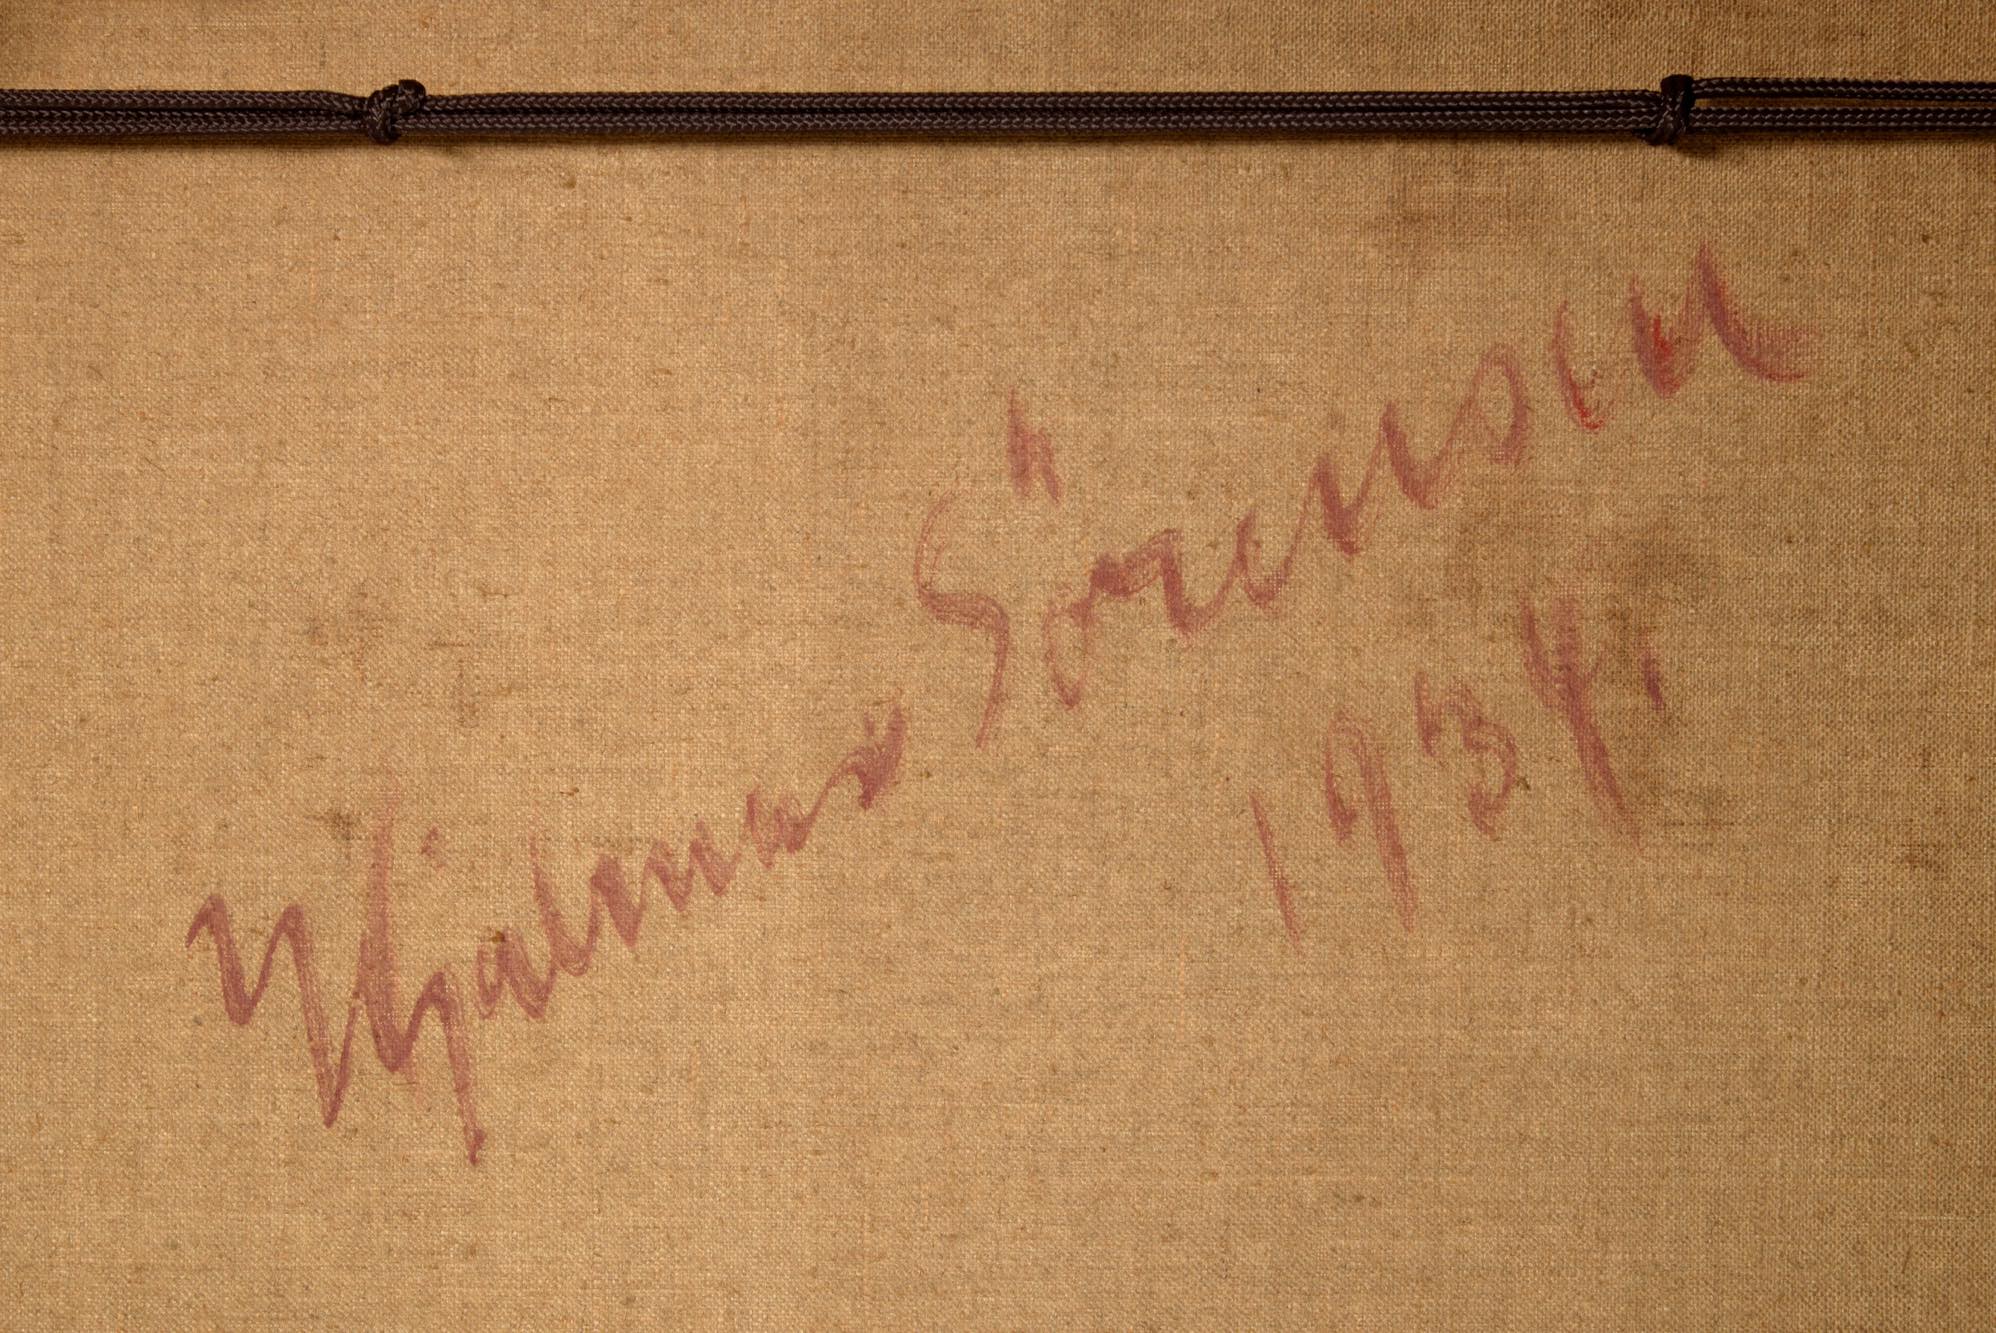 Hjalmar Sörensen
1934.